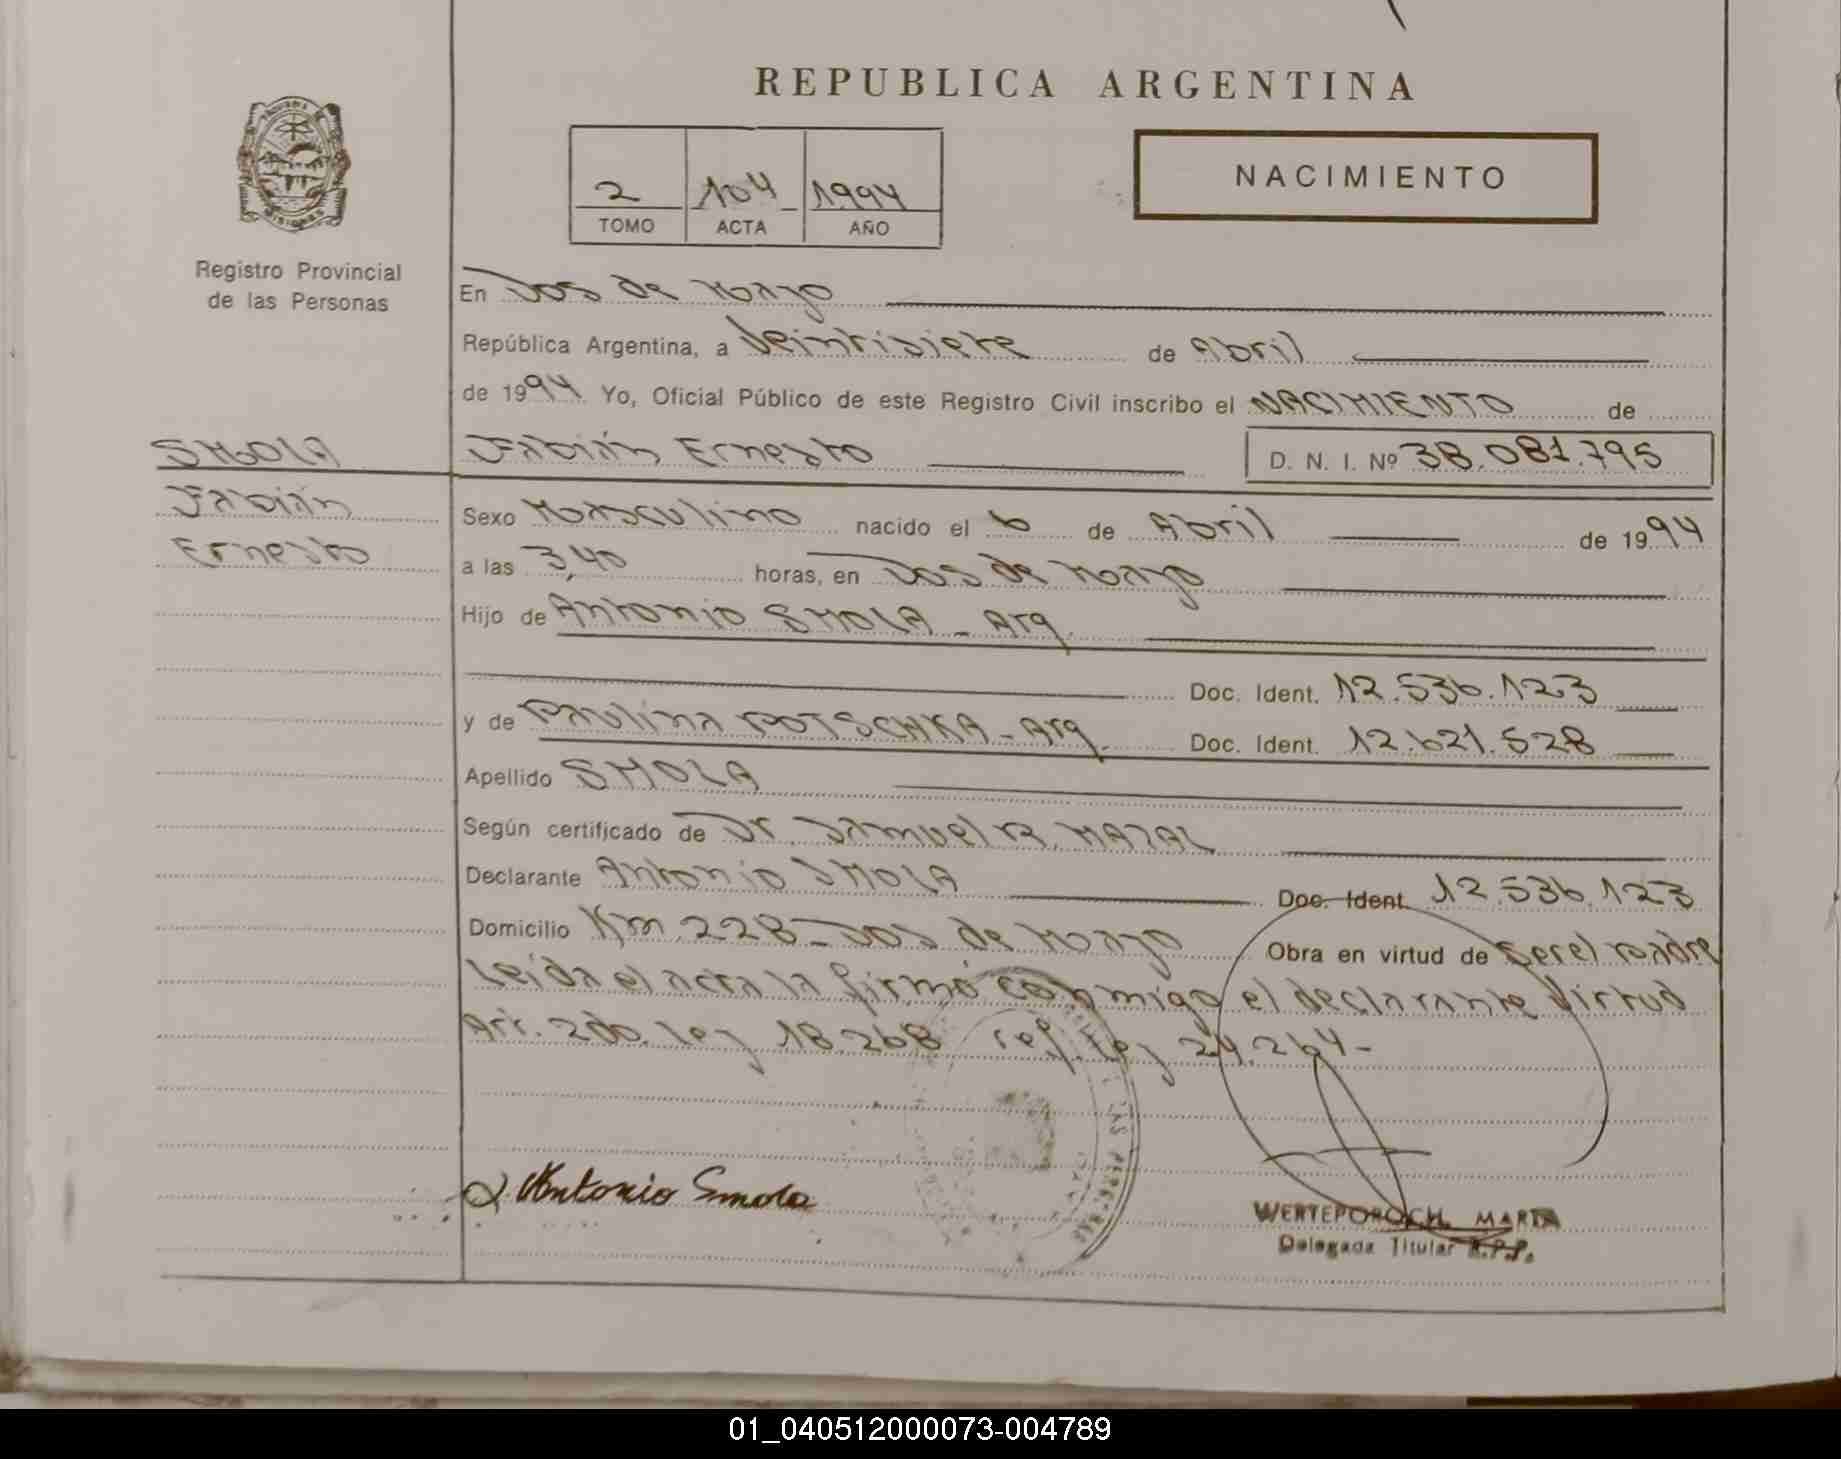 REPUBLICA ARGENTINA
MISIONES
Registro Provincial
de las Personas
2 104 1994
TOMO ACTA AÑO
NACIMIENTO
En Dos de Mayo
República Argentina, a Veintisiete de Abril
de 1994 Yo, Oficial Público de este Registro Civil inscribo el NACIMIENTO de
SMOLA
Fabián
Ernesto
Fabián Ernesto D. N. I. Nº 38.081.795
Sexo Masculino nacido el 6 de Abril de 1994
a las 3,40 horas, en Dos de Mayo
Hijo de Antonio SMOLA - Arg.
Doc. Ident. 12.536.123
y de Paulina POTSCHKA - Arg. Doc. Ident. 12.621.528
Apellido SMOLA
Según certificado de Dr. Samuel R. MAZAL
Declarante Antonio SMOLA Doc. Ident. 12.536.123
Domicilio Km 228 - Dos de Mayo Obra en virtud de ser el padre
Leída el acta la firmó conmigo el declarante Virtud
Art. 2do. Ley 18.268 ref. Ley 24.264-
Antonio Smola
WERTEPOROCH, MARTA
Delegada Titular R.P.P.
01_040512000073-004789